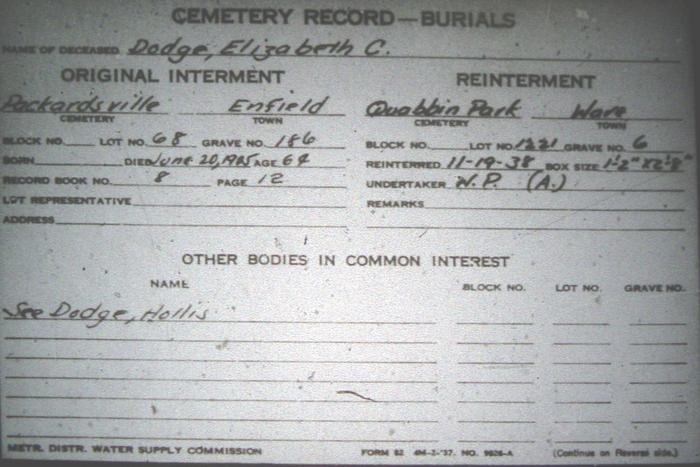 CEMETERY RECORD—BURIALS
NAME OF DECEASED Dodge, Elizabeth C.
ORIGINAL INTERMENT
Packardsville Enfield
CEMETERY TOWN
BLOCK NO. LOT NO. 68 GRAVE NO. 186
BORN DIED June 20, AGE 64
RECORD BOOK NO. 8 PAGE 12
LOT REPRESENTATIVE
ADDRESS
REINTERMENT
Quabbin Park Ware
CEMETERY TOWN
BLOCK NO. LOT NO. 1221 GRAVE NO. 6
REINTERRED 11-19-38 BOX SIZE 1'-2" x 2'-8"
UNDERTAKER W.P. (A.)
REMARKS
OTHER BODIES IN COMMON INTEREST
NAME BLOCK NO. LOT NO. GRAVE NO.
See Dodge, Hollis
METR. DISTR. WATER SUPPLY COMMISSION FORM 82 4M-2-'37. NO. 9826-A (Continue on Reverse side.)